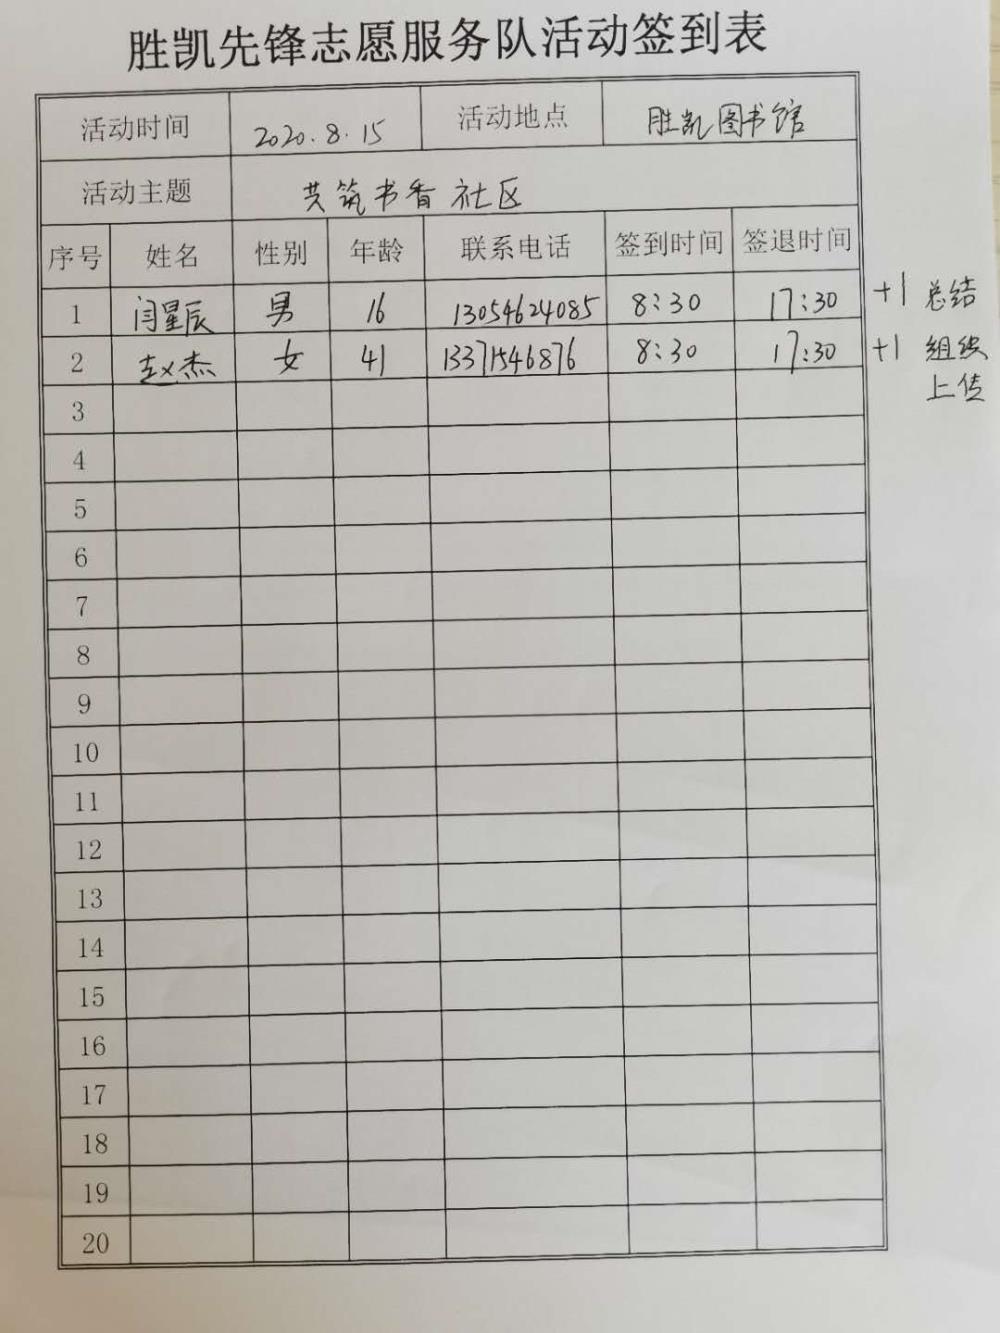 胜凯先锋志愿服务队活动签到表
活动时间 2020.8.15 活动地点 胜凯图书馆
活动主题 共筑书香社区
序号 姓名 性别 年龄 联系电话 签到时间 签退时间
1 闫星辰 男 16 13054624085 8:30 17:30 +1 总结
2 赵杰 女 41 13371546876 8:30 17:30 +1 组织
上传
3
4
5
6
7
8
9
10
11
12
13
14
15
16
17
18
19
20